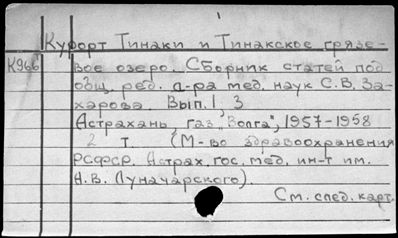 Курорт Тинаки и Тинакское грязе-
К966 вое озеро. Сборник статей под
общ. ред. д-ра мед. наук С.В. За-
харова. Вып. 1, 3
Астрахань, газ. "Волга", 1957-1958
2 т. (М-во здравоохранения
РСФСР. Астрах. гос. мед. ин-т им.
А.В. Луначарского).
См. след. карт.